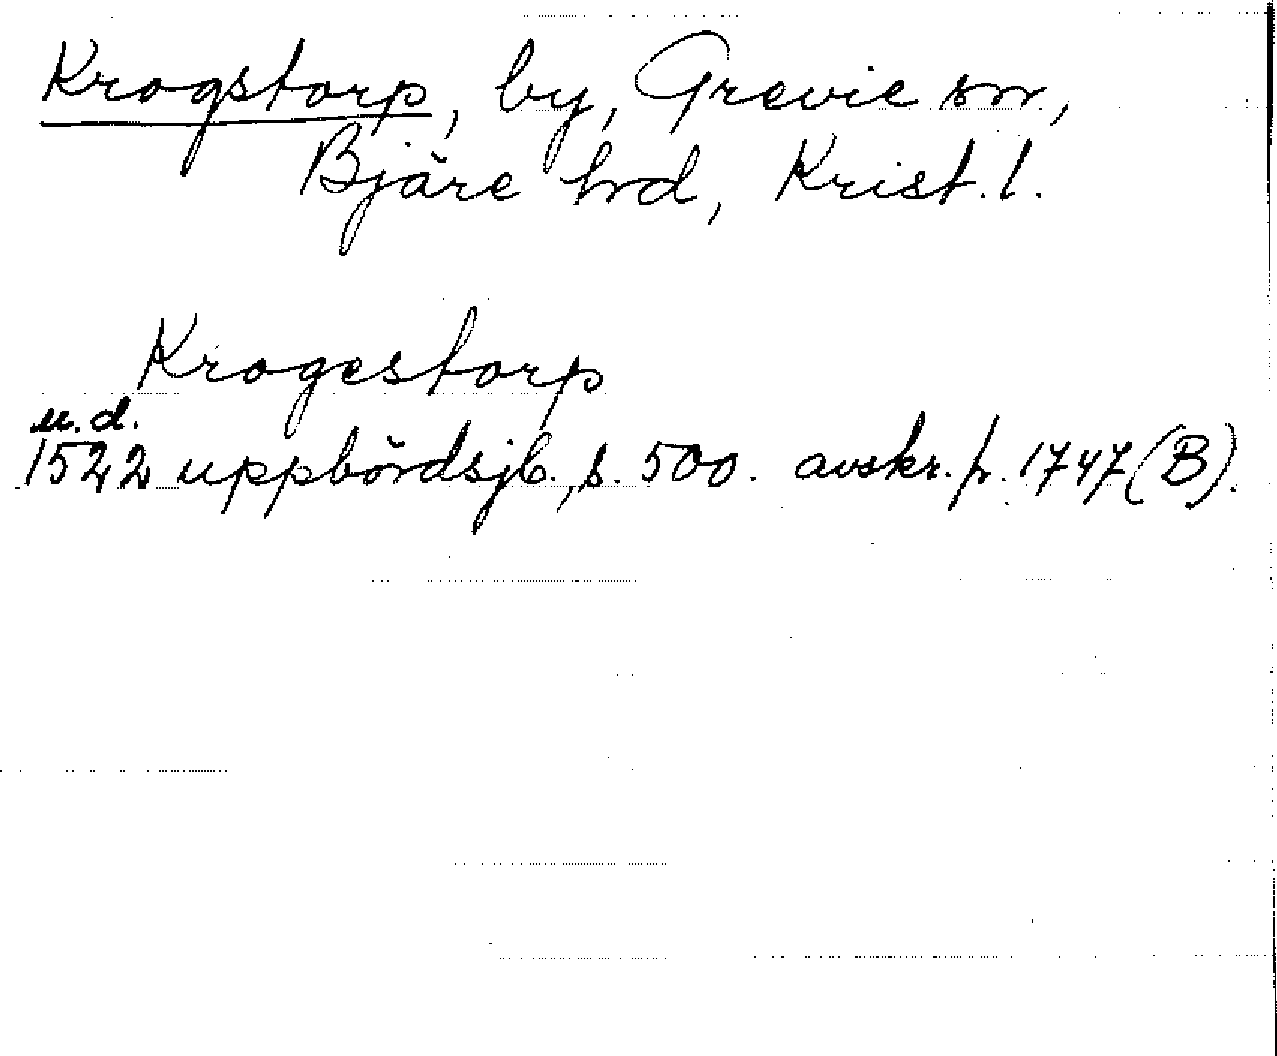 Krogstorp, by, Grevie sn,
Bjäre hd, Krist. l.
Krogestorp
u.d.
1522 uppbördsjb., s. 500. avskr. fr. 1747 (B).